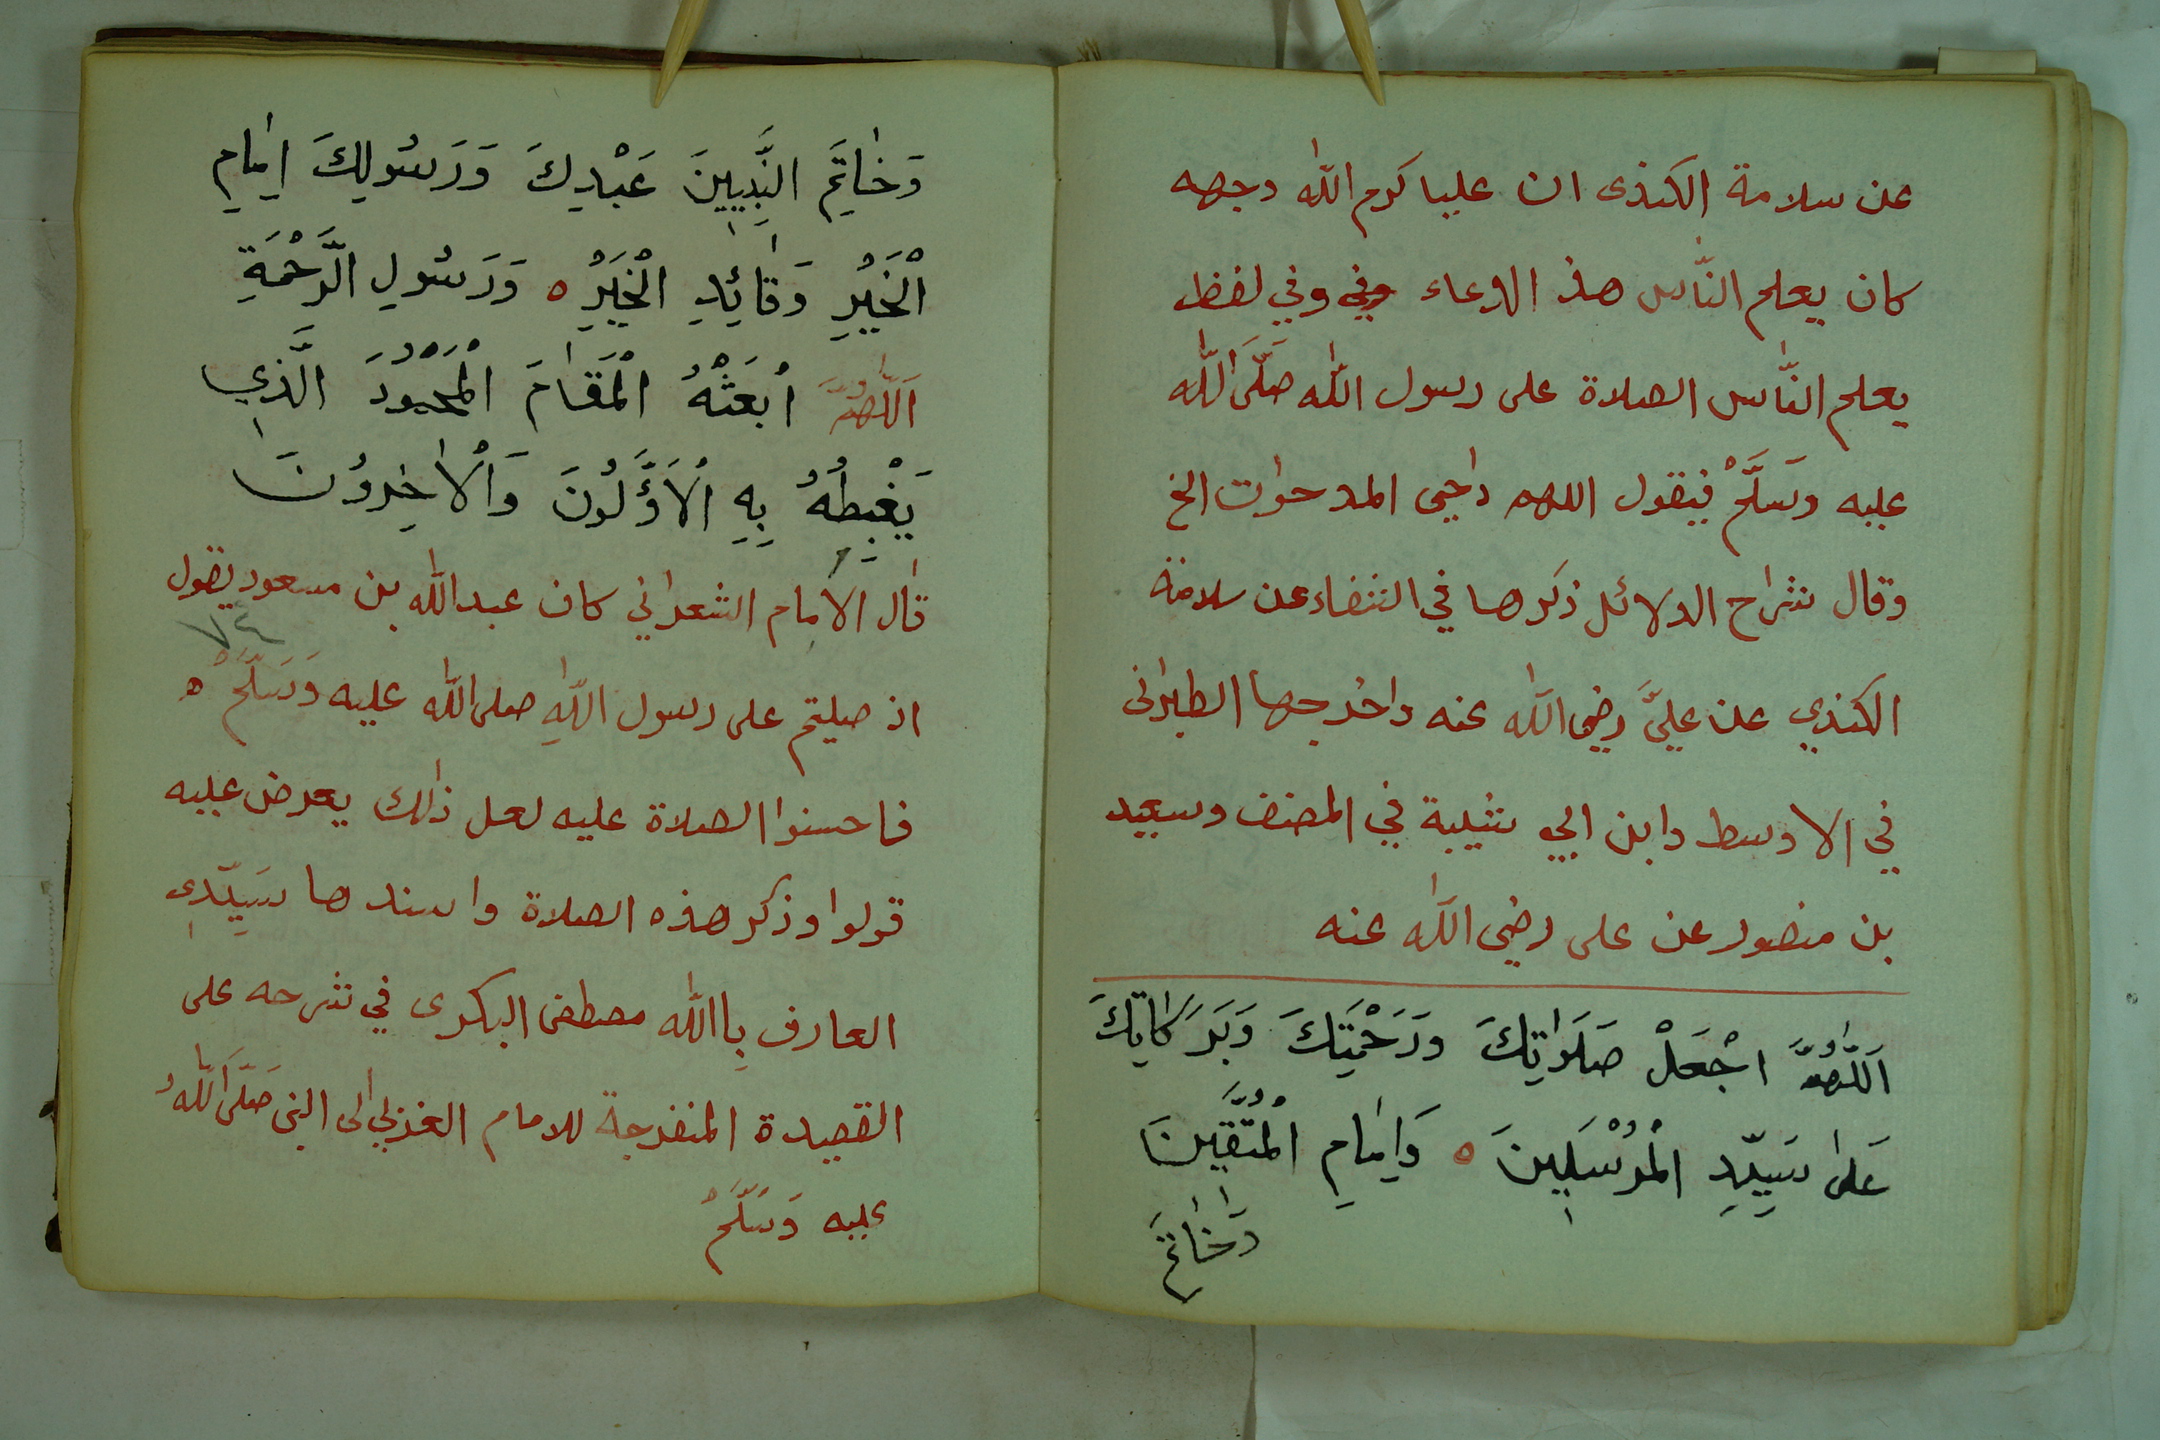 عن سلامة الكندى ان عليا كرم الله وجهه
كان يعلم الناس هذ الدعاء وفي وفي لفظ
يعلم الناس الصلاة على رسول الله صَلَّى الله
عليه وَسَلَّمْ فيقول اللهم داحى المدحوات الخ
وقال شراح الدلائل ذكرها في الشفاء عن سلامة
الكندي عن عليَّ رضى الله عنه واخرجها الطبرانى
في الاوسط وابن ابي شيبة في المصنف وسعيد
بن منصور عن على رضي الله عنه
اَللّٰهُمَّ اجْعَلْ صَلَوَاتِكَ وَرَحْمَتِكَ وَبَرَكَاتِكَ
عَلَى سَيِّدِ الْمُرْسَلِينَ ه وَاِمَامِ الْمُتَّقِينَ
وَخَاتَمِ
وَخَاتَمِ النَّبِيِينَ عَبْدِكَ وَرَسُولِكَ اِمَامِ
الْخَيْرِ وَقَائِدِ الْخَيْرِ ه وَرَسُولِ الرَّحْمَةِ
اَللّٰهُمَّ ابْعَثْهُ الْمَقَامَ الْمَحْمُودَ الَّذِي
يَغْبِطُهُ بِهِ الْاَوَّلُونَ وَالْاٰخِرُونَ
قال الامام الشعراني كان عبدالله بن مسعود يقول
٧٤
اذ صليتم على رسول اللهِ صلى الله عليه وَسَلَّمْ ه
فاحسنوا الصلاة عليه لعل ذالك يعرض عليه
قولوا وذكر هذه الصلاة واسندها سَيِّدِى
العارف بِاالله مصطفى البكرى في شرحه على
القصيدة المنفرجة للامام الغزلي الى النبى صَلَّى اللهُ
عليه وَسَلَّمْ